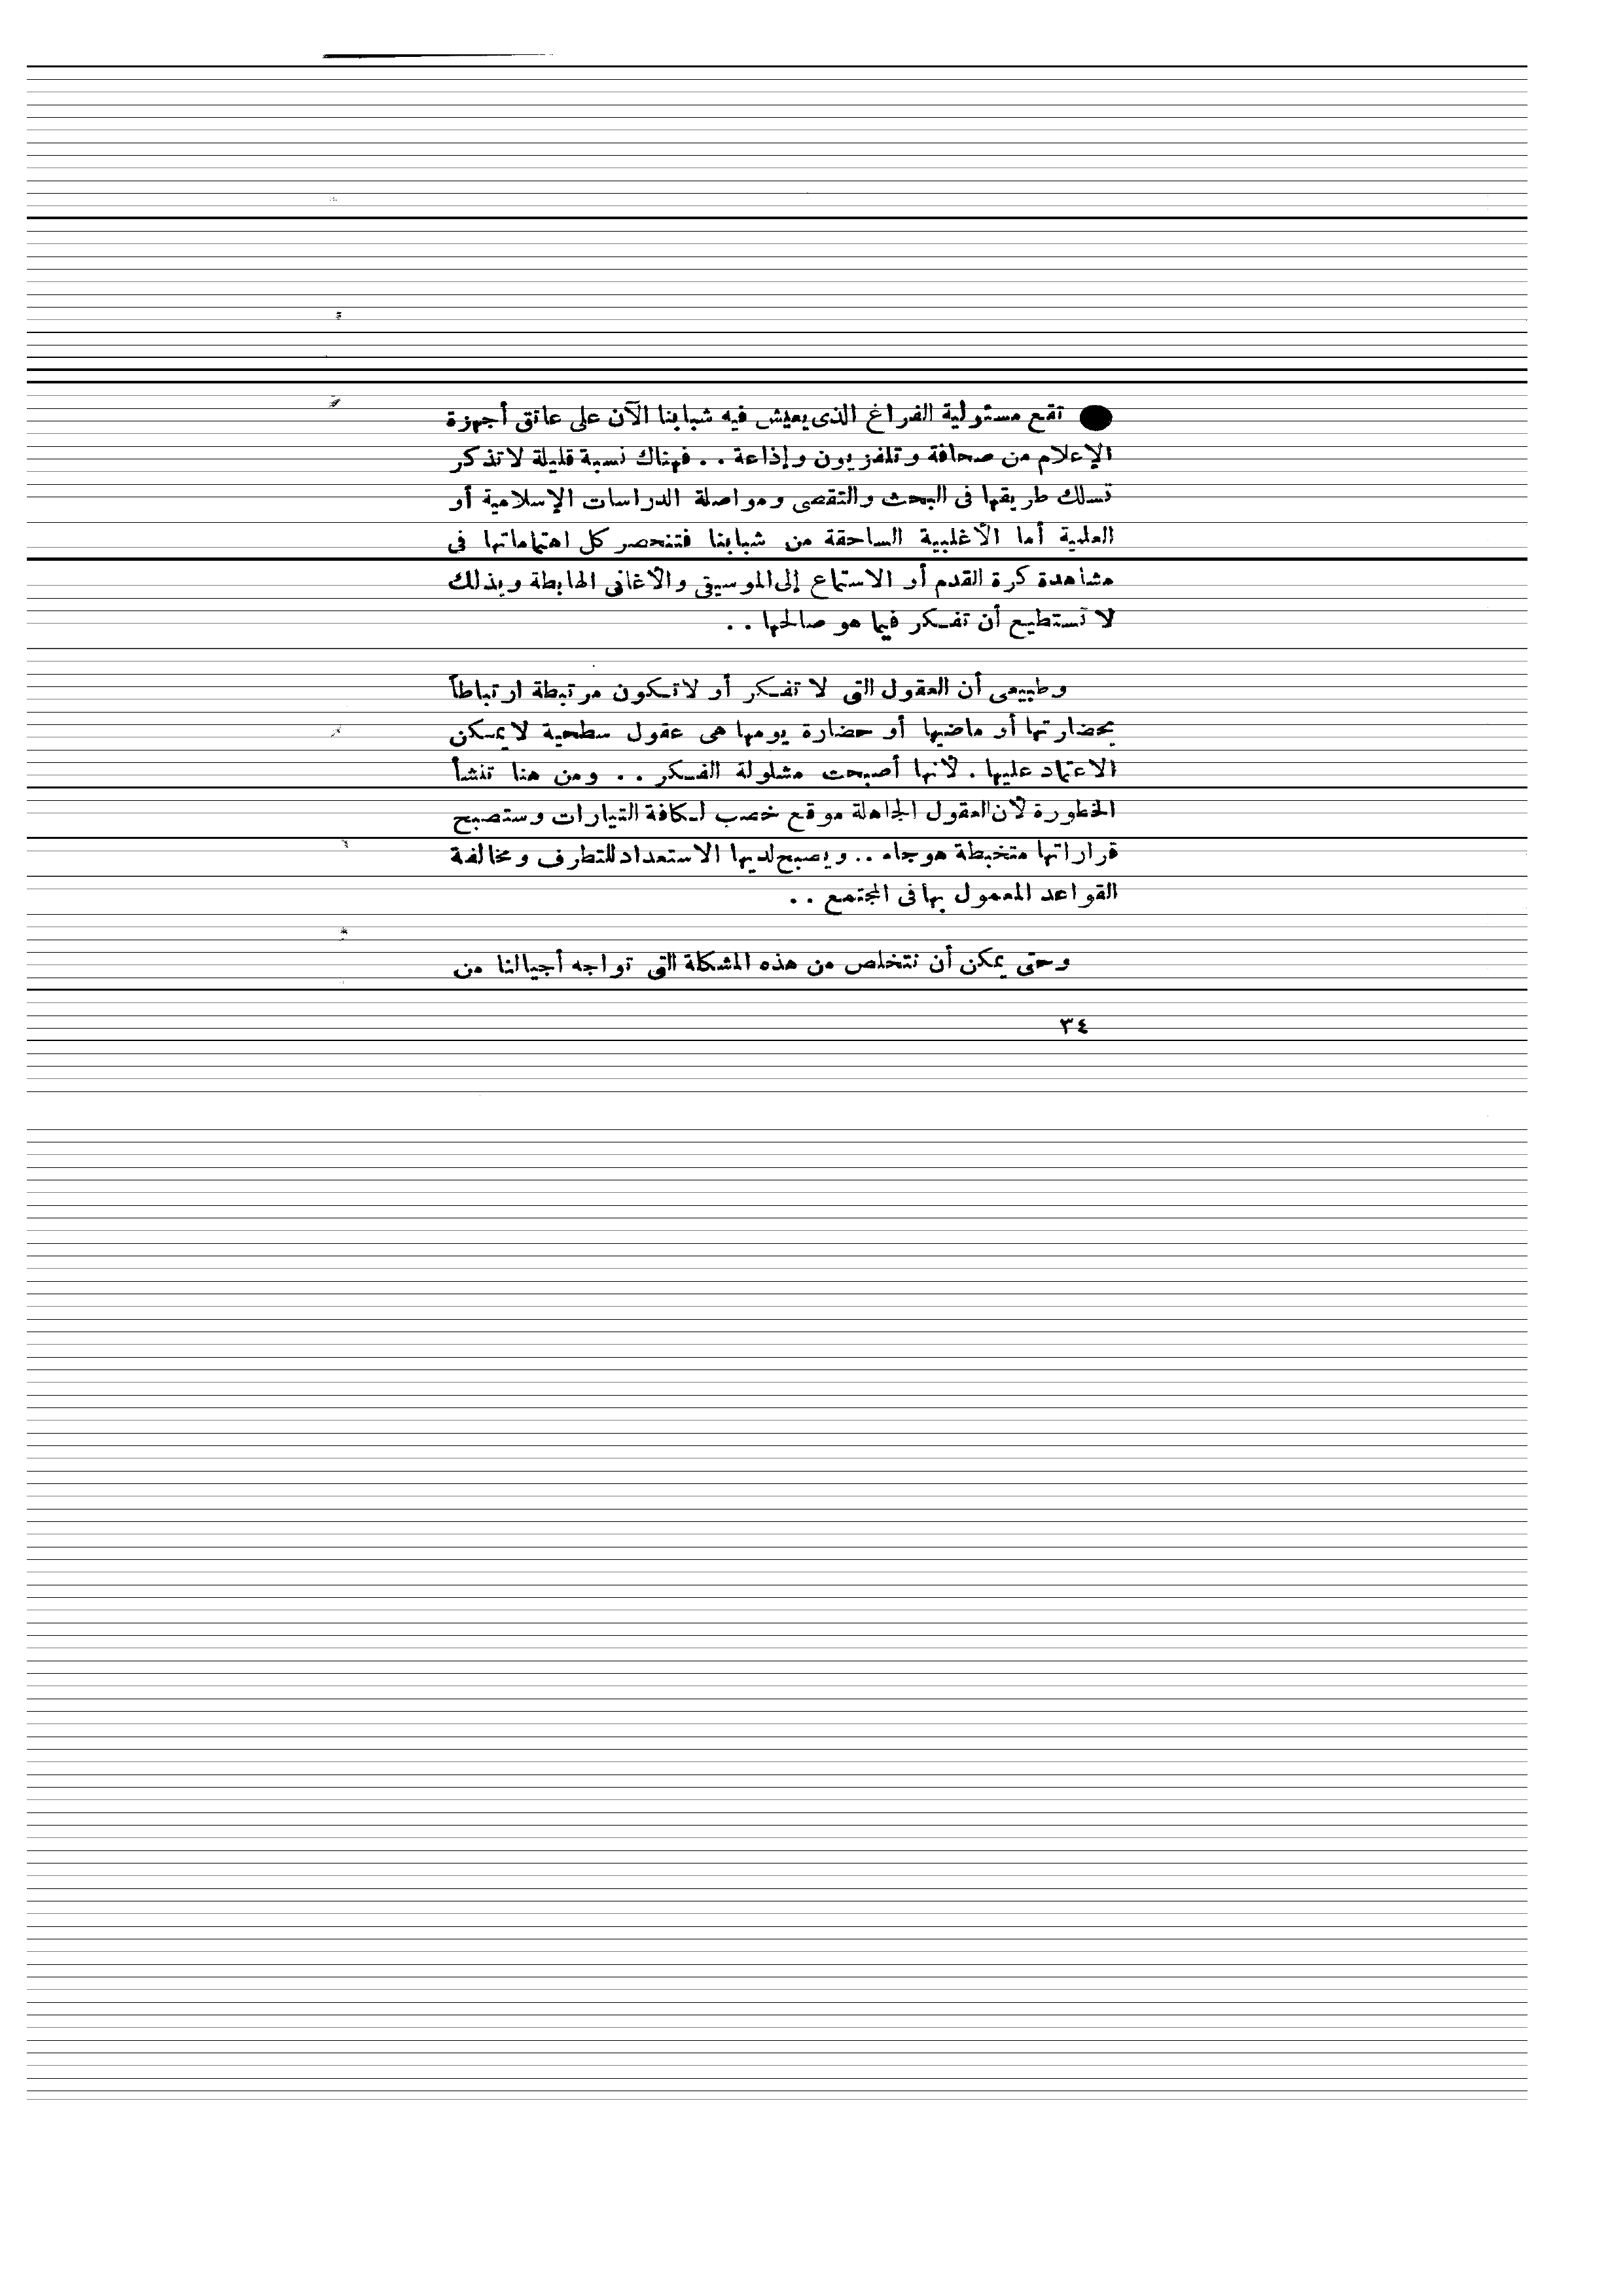 ● تقع مسئولية الفراغ الذى يعيش فيه شبابنا الآن على عاتق أجهزة
الإعلام من صحافة وتلفزيون وإذاعة . . فهناك نسبة قليلة لا تذكر
تسلك طريقها فى البحث والتقصى ومواصلة الدراسات الإسلامية أو
العلمية أما الأغلبية الساحقة من شبابنا فتنحصر كل اهتماماتها فى
مشاهدة كرة القدم أو الاستماع إلى الموسيقى والأغانى الهابطة وبذلك
لا تستطيع أن تفكر فيما هو صالحها . .
وطبيعى أن العقول التى لا تفكر أو لا تكون مرتبطة ارتباطاً
بحضارتها أو ماضيها أو حضارة يومها هى عقول سطحية لا يمكن
الاعتماد عليها . لأنها أصبحت مشلولة الفكر . . ومن هنا تنشأ
الخطورة لأن العقول الجاهلة موقع خصب لكافة التيارات وستصبح
قراراتها متخبطة هوجاء . . ويصبح لديها الاستعداد للتطرف ومخالفة
القواعد المعمول بها فى المجتمع . .
وحتى يمكن أن نتخلص من هذه المشكلة التى تواجه أجيالنا من
٣٤